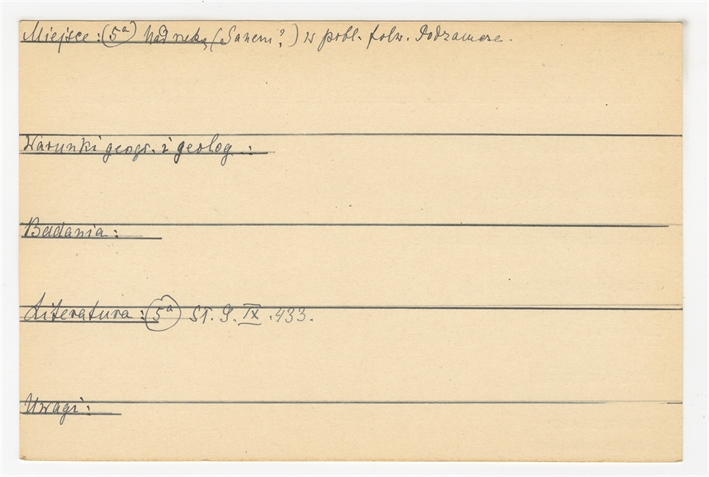 Miejsce: (5a) Nad rzeką (Sanem?) w pobl. folw. Podzamcze.
Warunki geogr. i geolog.:
Badania:
Literatura: (5a) Sł. G. IX. 433.
Uwagi: